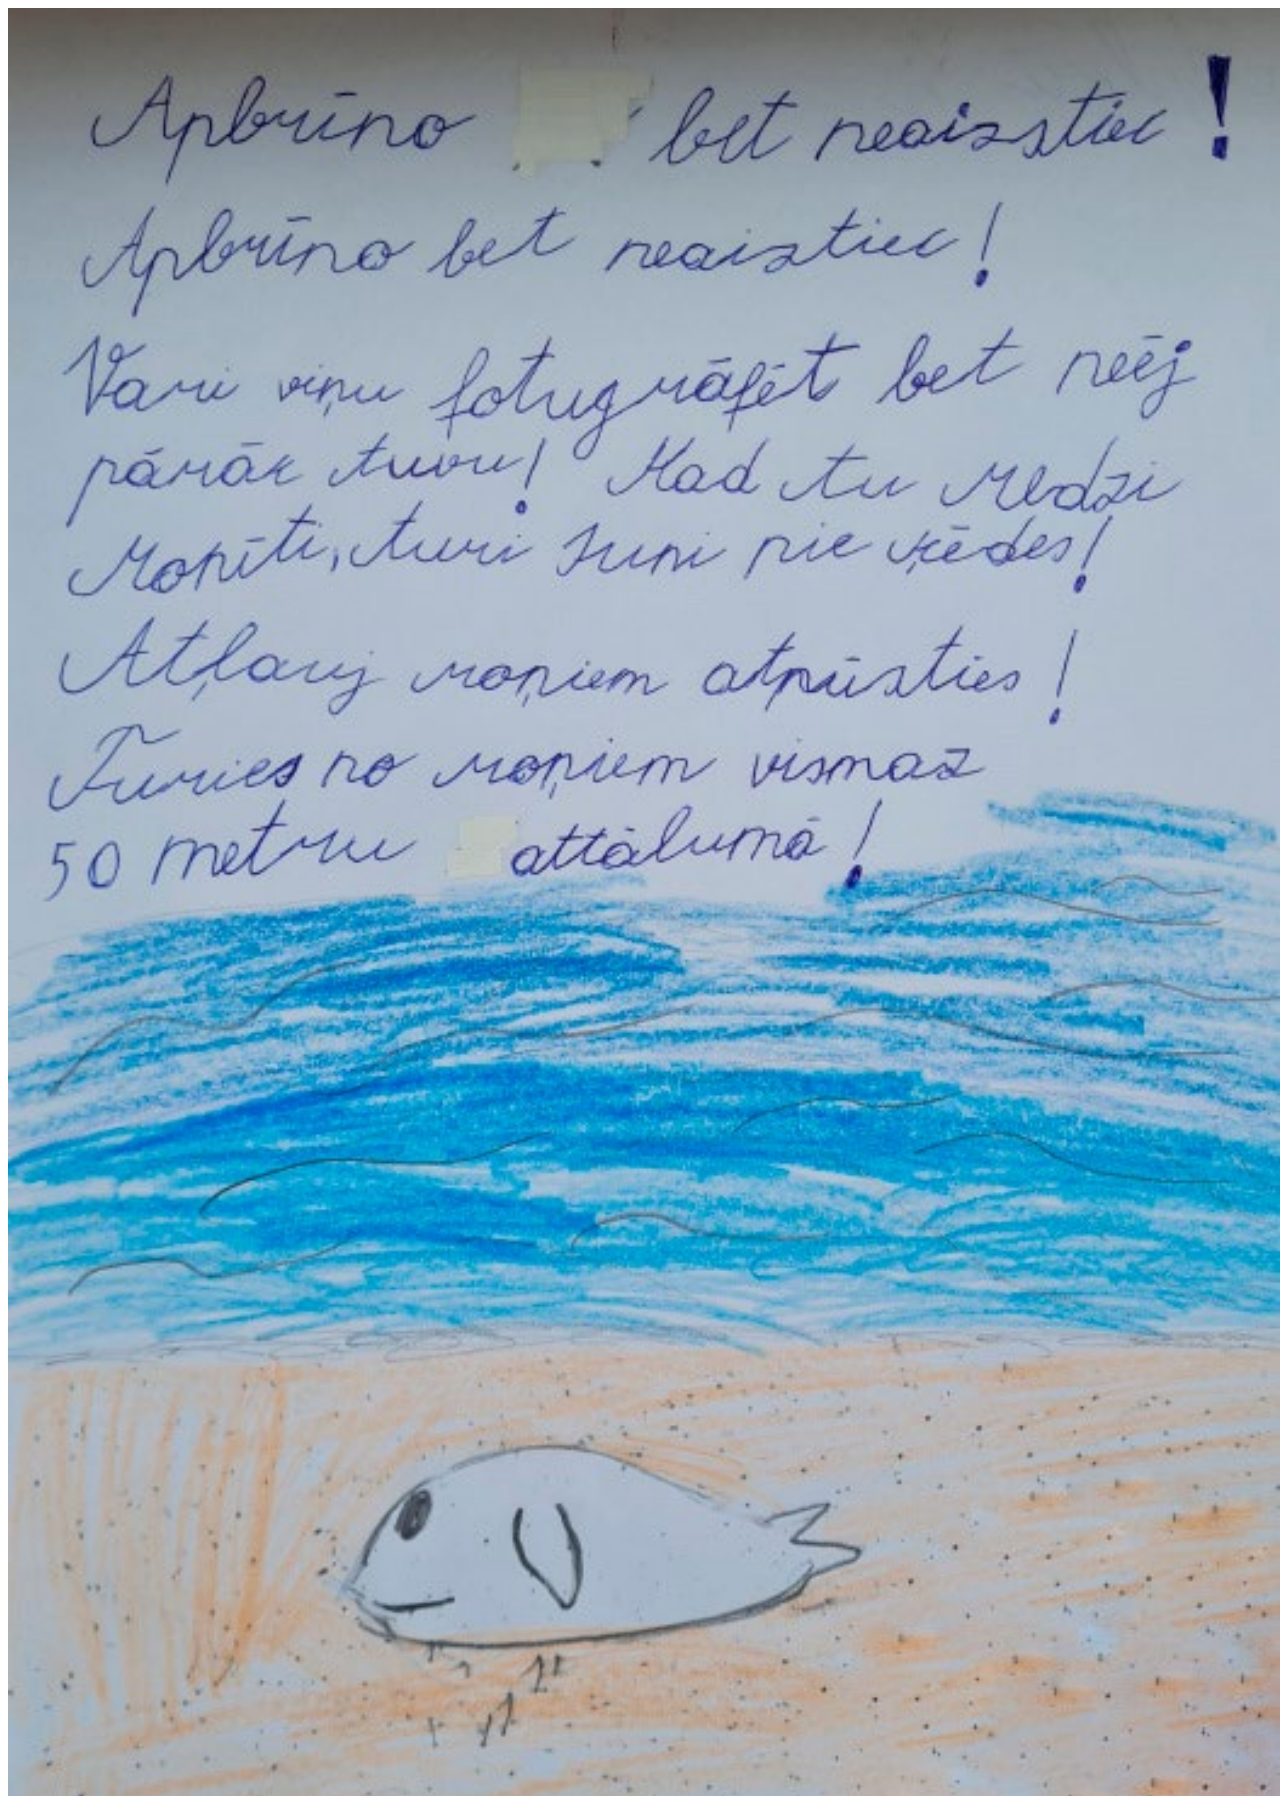 Apbrīno bet neaizstiec!
Apbrīno bet neaiztiec!
Vari viņu fotugrāfēt bet neēj
pārāk tuvu! Kad tu redzi
ronīti, turi suni pie ķēdes!
Atļauj roņiem atpūsties!
Turies no roņiem vismaz
50 metru attālumā!